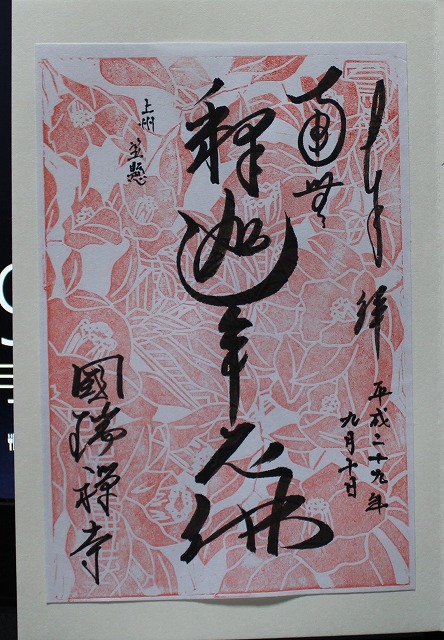 奉拝
平成二十九年
九月十日
南無
釋迦牟尼佛
上州
國瑞禅寺